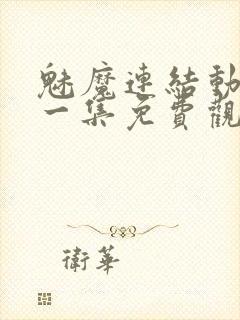 魅魔連結動
一集免費觀
衛華